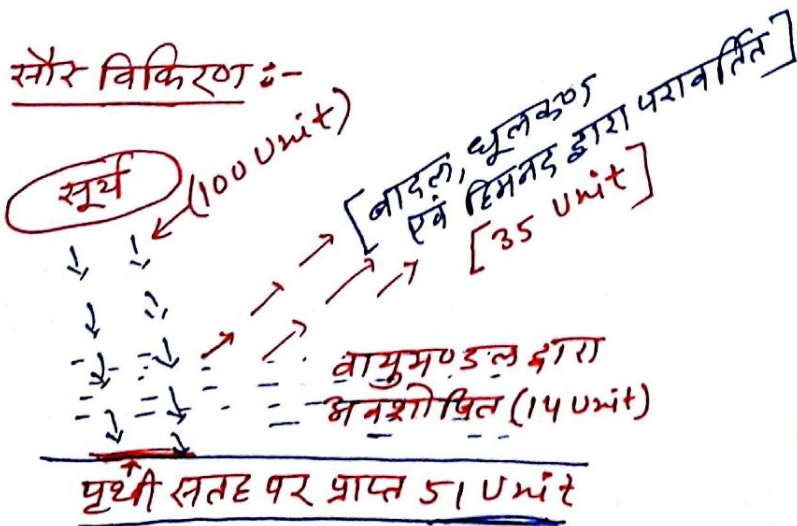 सौर विकिरण :-
सूर्य (100 Unit)
[बादल, धूलकण
एवं हिमनद द्वारा परावर्तित]
[35 Unit]
वायुमण्डल द्वारा
अवशोषित (14 Unit)
पृथ्वी सतह पर प्राप्त 51 Unit